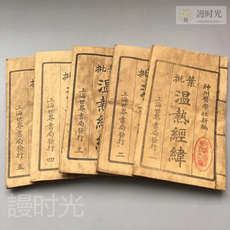 謾时光
神州醫學社新編
葉批
溫熱經緯
上海世界書局發行 一
葉批
溫熱經緯
上海世界書局發行 二
批
溫熱經緯
上海世界書局發行 三
批
上海世界書局發行 四
上海世界書局發行 五
謾时光